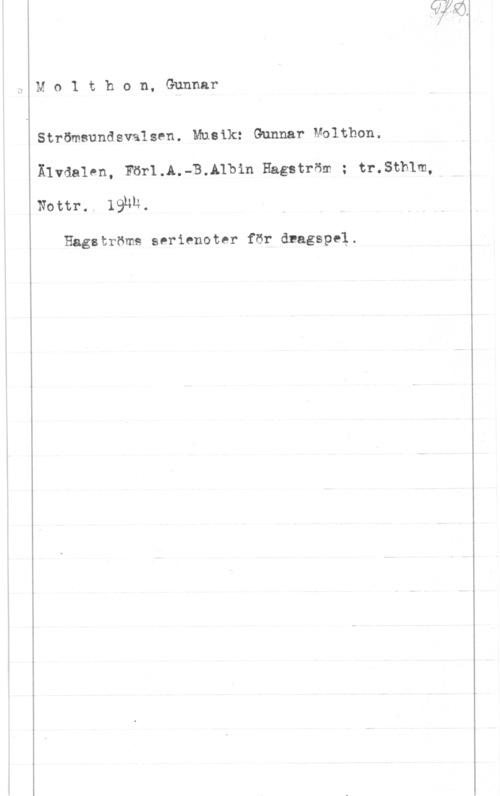 M o l t h o n, Gunnar
Strömsundsvalsen. Musik: Gunnar Molthon.
Älvdalen, Förl.A.-B.Albin Hagström ; tr.Sthlm,
Nottr. 1944.
Hagströms serienoter för dragspel.